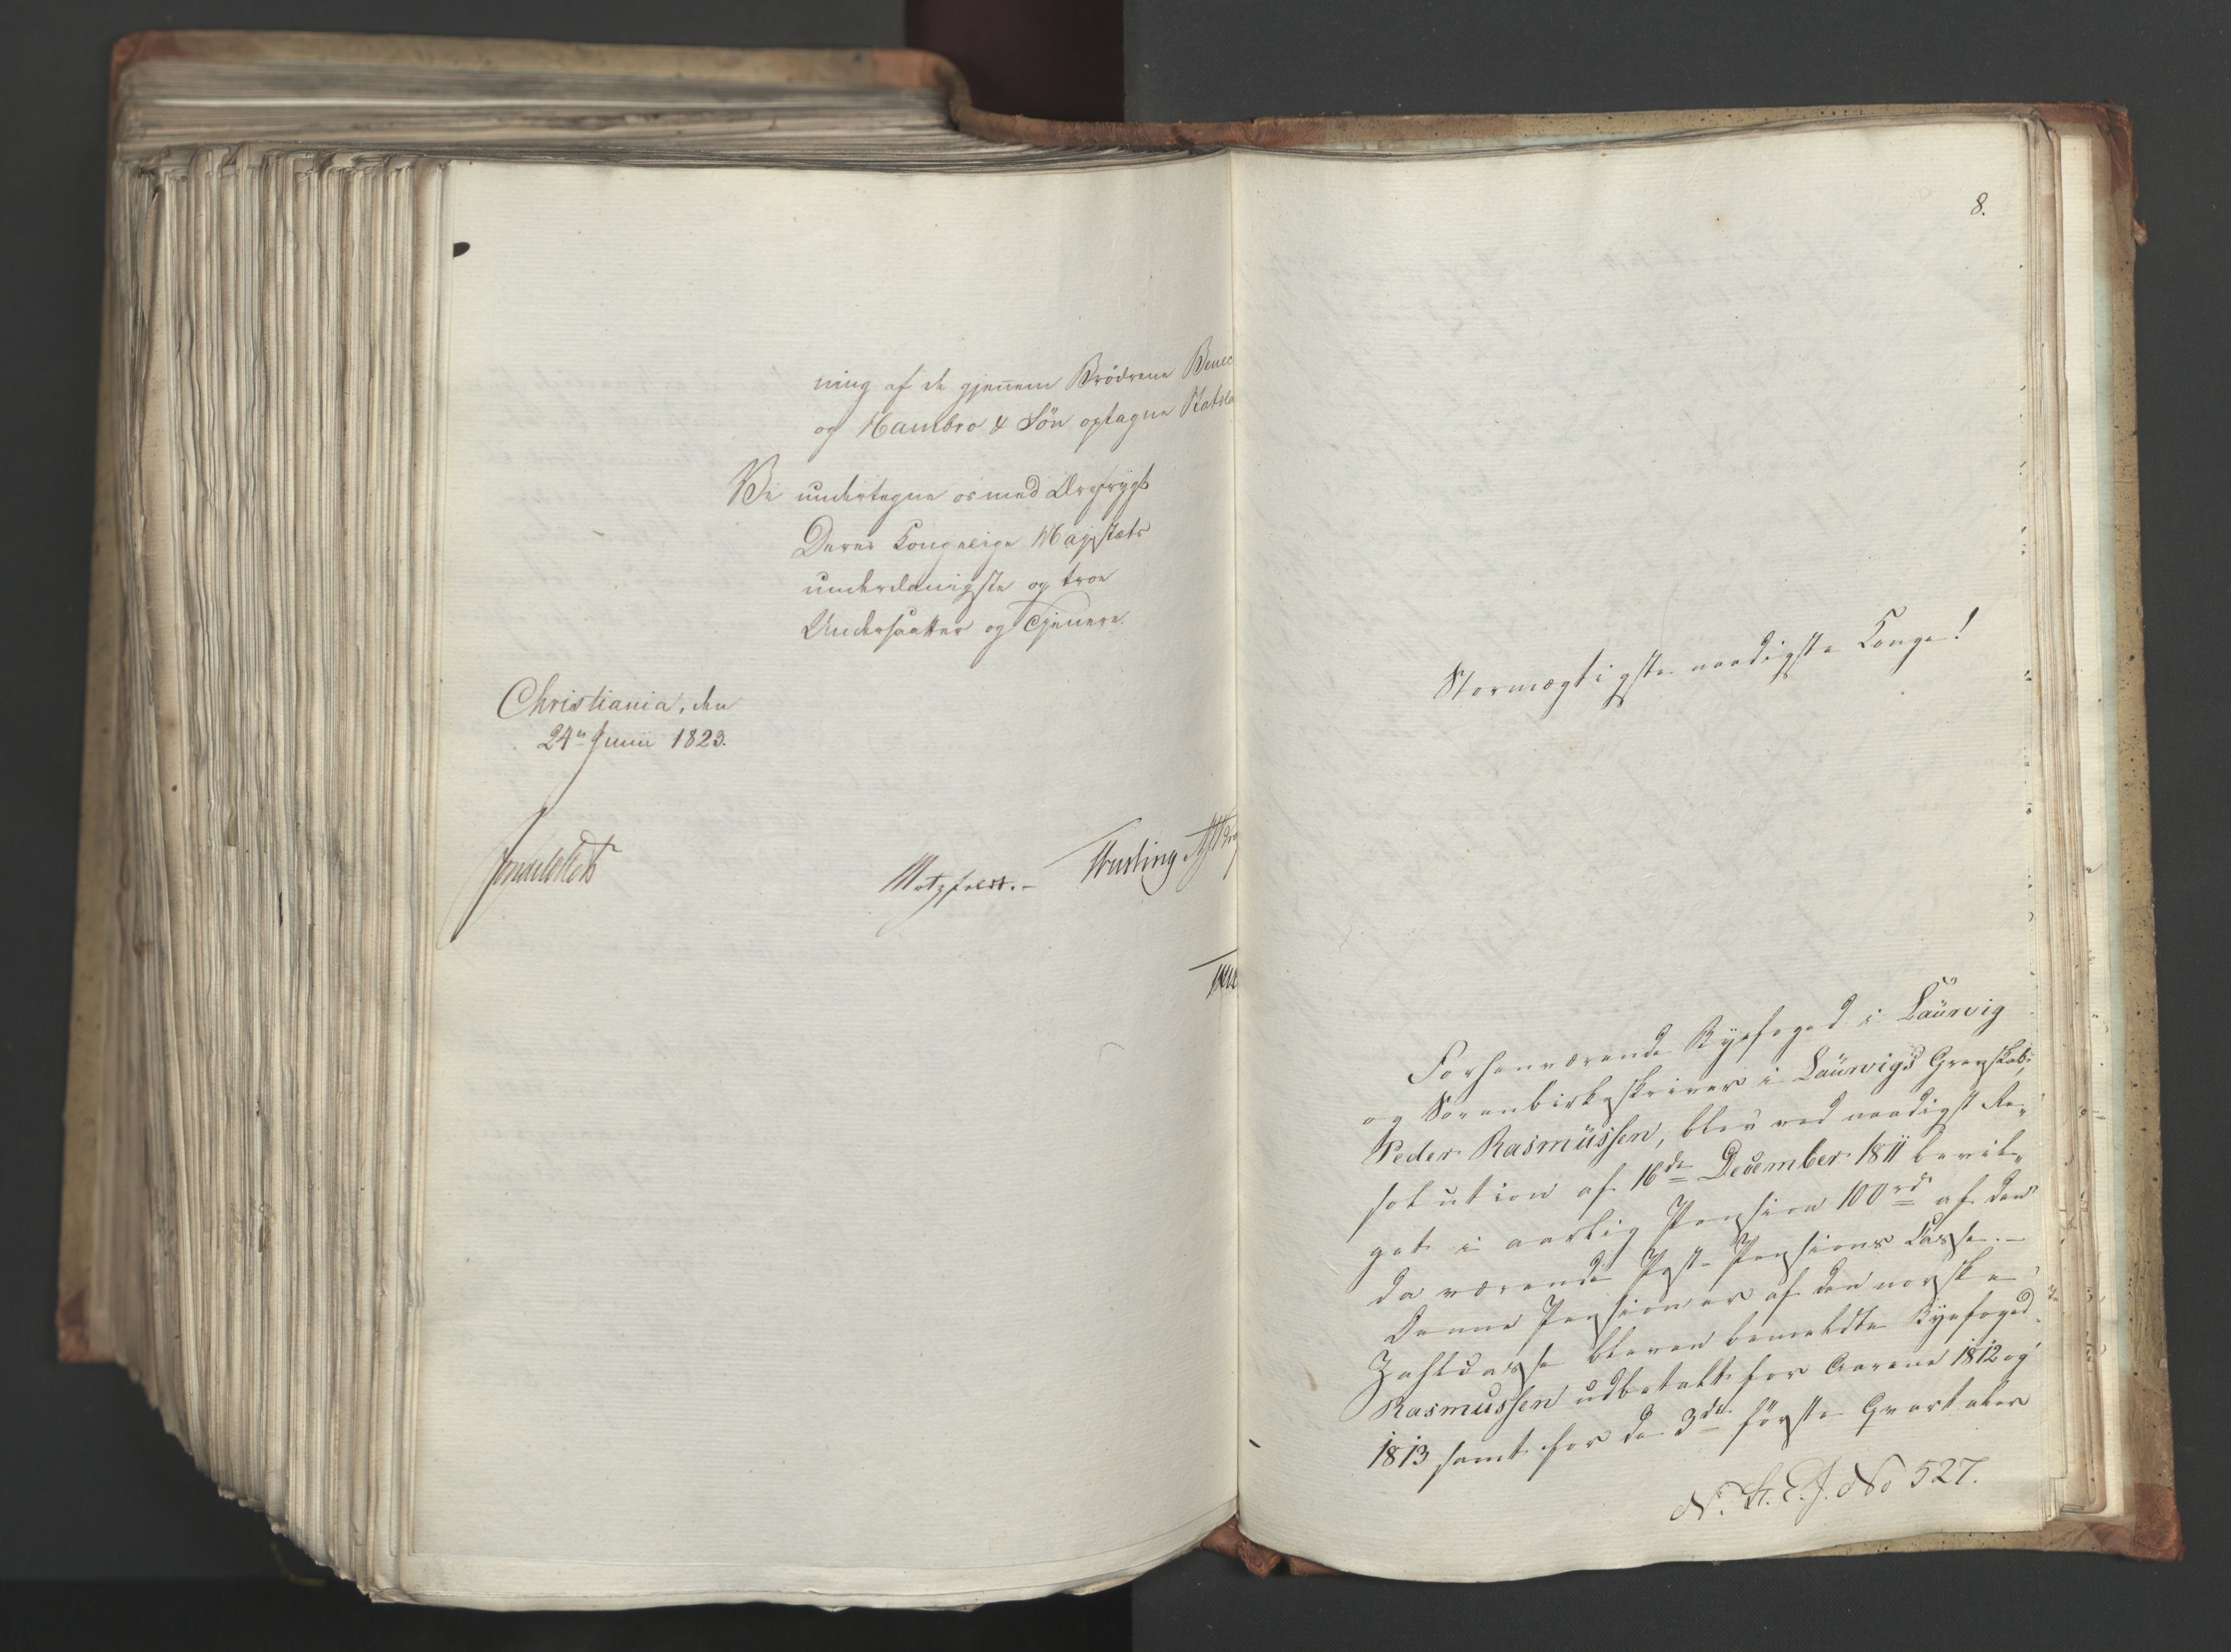 ning af de gjennem Brödrene Benec
og Hambro & Sön optagne Statsla
Vi undertegne os med Ærefrygt
Deres Kongelige Majestæts
underdanigste og troe
Undersaatter og Tjenere.
Christiania, den
24n Junii 1823.
Motzfeldt.-
8.
Stormægtigste naadigste Konge!
Forhenværende Byefoged i Laurvig
og Sorenbirkeskriver i Laurvigs Grevskab,
Peder Rasmussen, blev ved naadigst Re„
solution af 16de December 1811 bevil„
get i aarlig Pension 100 rd af den
da værende Post-Pensions Casse.-
Denne Pension er af den norske
Zahlcasse bleven bemeldte Byefoged
Rasmussen udbetalt for Aarene 1812 og
1813 samt for de 3de förste Qvartaler
N. H. E. J. No 527.